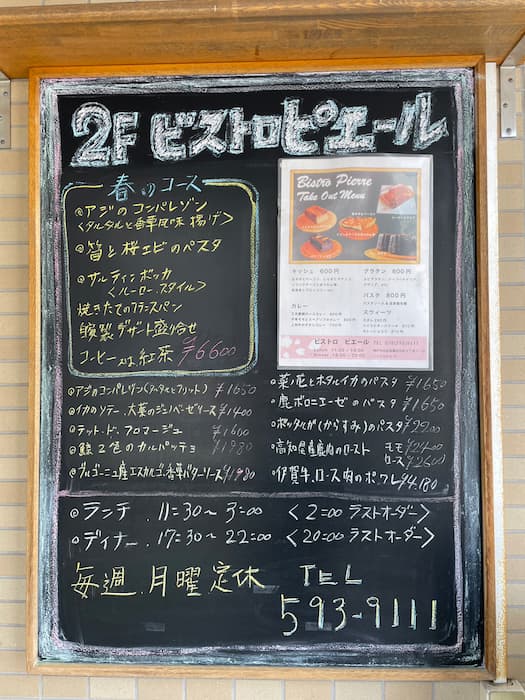 2F ビストロピエール
春のコース
@アジのコンパレゾン
<タルタルと香草風味 揚げ>
@筍と桜エビのパスタ
@サルティンボッカ
<ルーロースタイル>
焼きたてのフランスパン
自家製デザート盛合せ
コーヒー又は紅茶 ¥6600
Bistro Pierre
Take Out Menu
キッシュ 600円
グラタン 800円
パスタ 800円
カレー
スウィーツ
ビストロ ピエール
@アジのコンパレゾン(タルタルとフリット) ¥1650
@イカのソテー、大葉のジェノベーゼソース ¥1400
@テット・ド・フロマージュ ¥1600
@鮮2色のカルパッチョ ¥1980
@ブルゴーニュ産エスカルゴ、香草バターソース ¥1980
@菜の花とホタルイカのパスタ ¥1650
@鹿ボロニエーゼのパスタ ¥1650
@ボッタルガ(からすみ)のパスタ ¥2200
@高知県産鹿肉のロースト モモ ¥2400
ロース ¥2600
@伊賀牛、ロース肉のポワレ ¥4.180
@ランチ.11:30~3:00 <2:00 ラストオーダー>
@ディナー.17:30~22:00 <20:00 ラストオーダー>
毎週.月曜.定休 TEL
593-9111